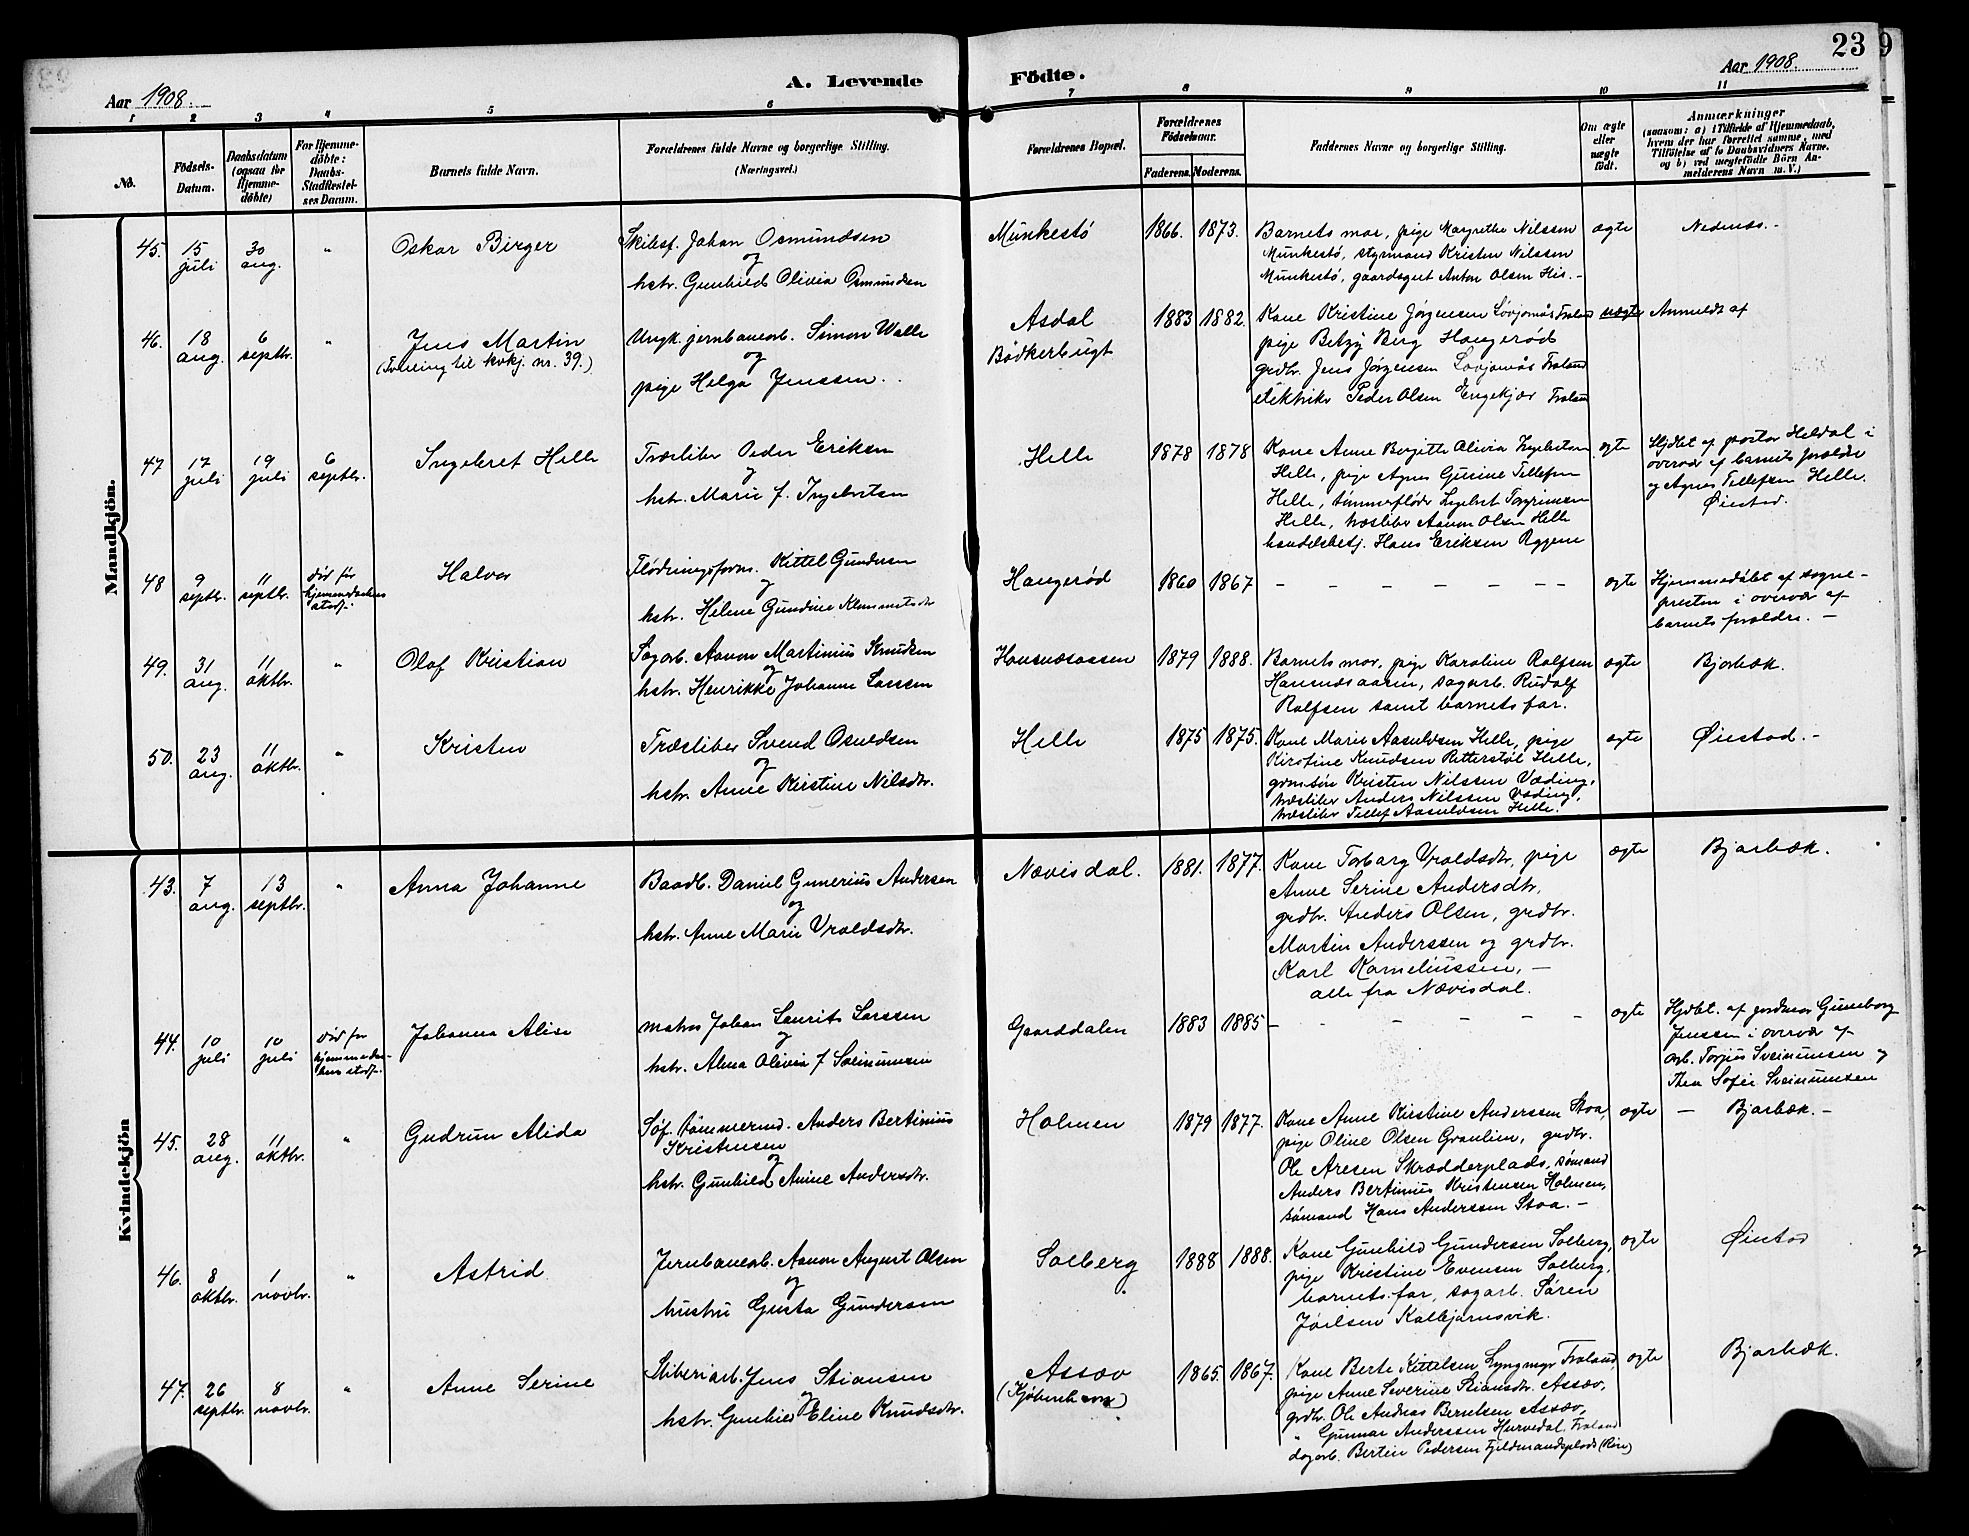 23
9
Aar 1908.
A. Levende
Födte.
Aar 1908.
1 2 3 4 5 6 7 8 9 10 11
No.
Födsels-
Datum.
Daabsdatum
(ogsaa for
Hjemme-
döbte)
For Hjemme-
döbte:
Daabs-
Stadfæstel-
ses Datum.
Barnets fulde Navn.
Forældrenes fulde Navne og borgerlige Stilling.
(Næringsvei.)
Forældrenes Bopæl.
Forældrenes
Födselsaar.
Faderens.
Moderens.
Faddernes Navne og borgerlige Stilling.
Om ægte
eller
uægte
födt.
Anmærkninger
(saasom: a) i Tilfælde af Hjemmedaab,
hvem der har forrettet samme, med
Tilföielse af to Daabsvidners Navne,
og b) ved uægtefödte Börn An-
melderens Navn m. V.)
Mandkjön.
45.
15
juli
30
aug.
"
Oskar Birger
Skibsf. Johan Osmundsen
og
hstr. Gunhild Olivia Osmundsen
Munkestö
1866. 1873.
Barnets mor, pige Margrethe Nilssen
Munkestö, styrmand Kristen Nilssen
Munkestö, gaardsgut Anton Olsen His. -
ægte
Nedenes. -
46.
18
aug.
6
septbr.
"
Jens Martin
(Tvilling til kvkj. nr. 39.)
Ungk. jernbanearb. Simon Walle
og
pige Helga Jenssen.
Asdal
Bödkerbugt
1883 1882.
Kone Kristine Jörgensen Lövjomås Froland
pige Betzy Berg Haugeröd
grdbr. Jens Jörgensen Lövjomås Froland
elektriker Peder Olsen Engekjær Froland
uægte
Anmeldt af
47
17
juli
19
juli
6
septbr.
Ingebret Helle
Træsliber Peder Eriksen
og
hstr. Marie f. Ingebretsen
Helle
1878 1878
Kone Anne Birgitte Olivia Ingebretsen
Helle, pige Agnes Gurine Tellefsen
Helle, tömmerflöder Ingebret Torgrimsen
Helle, træsliber Aanon Olsen Helle
handelsbetj. Hans Eriksen Rygene
ægte
Hjdöbt af pastor Heldal i
overvær af barnets forældre
og Agnes Tellefsen Helle.
Øiestad.
48
9
septbr.
11
septbr.
död för
hjemmedaabens
stadf.
Halvor
Flödningsform. Kittel Gundersen
og
hstr. Helene Gundine Klemmetsdtr
Haugeröd
1860 1867
- - - - - - -
ægte
Hjemmedöbt af sogne-
presten i overvær af
barnets forældre. -
49.
31
aug.
11
oktbr.
"
Olaf Kristian
Sagarb. Aanon Martinius Knudsen
og
hstr. Henrikke Johanne Larsen
Hansnæsaasen
1879 1888.
Barnets mor, pige Karoline Rolfsen
Hansnæsaasen, sagarb. Rudolf
Rolfsen samt barnets far.
ægte
Bjorbæk.
50.
23
aug.
11
oktbr.
"
Kristen
Træsliber Svend Osuldsen
og
hstr. Anne Kirstine Nilsdtr.
Helle
1875 1875.
Kone Marie Aasuldsen Helle, pige
Kirstine Knudsen Ritterstöl Helle,
grdm.sön Kristen Nilssen Væding,
træsliber Anders Nilssen Væding,
træsliber Tellef Aasuldsen Helle.
ægte
Øiestad. -
Kvindekjön
43.
7
aug.
13
septbr.
"
Anna Johanne
Baadb. Daniel Gunerius Andersen
og
hstr. Anne Marie Vraldsdtr.
Nævisdal.
1881. 1877.
Kone Torbarg Vraldsdtr, pige
Anne Serine Andersdtr.
grdbr. Anders Olsen, grdbr.
Martin Anderssen og grdbr.
Karl Korneliussen, -
alle fra Nævisdal.
ægte
Bjorbæk.
44.
10
juli
10
juli
död för
hjemmedaa-
bens stadf.
Johanna Alise
matros Johan Laurits Larssen
og
hstr. Alma Olivia f Sveinumsen
Gaarddalen
1883 1885
- - - - - - -
ægte
Hjdbt. af jordmor Gunnborg
Jenssen i overvær af
arb. Torjus Sveinumsen og
Thea Sofie Sveinumsen
45.
28
aug.
11
oktbr.
"
Gudrun Alida
Söf. tömmermd. Anders Bertinius
Kristensen
og
hstr. Gunhild Amine Andersdtr.
Holmen
1879 1877.
Kone Anne Kirstine Anderssen Stoa,
pige Oline Olsen Granlien, grdbr.
Ole Aresen Skrædderplads, sömand
Anders Bertinius Kristensen Holmen,
sömand Hans Anderssen Stoa. -
ægte
- Bjorbæk. -
46.
8
oktbr.
1
novbr.
"
Astrid
Jernbanearb. Aanon August Olsen
og
hustru Gusta Gundersen
Solberg
1888 1888.
Kone Gunhild Gundersen Solberg,
pige Kristine Evensen Solberg,
barnets far, sagarb. Sören
Jöilsen Kalbjörnsvik.
ægte
Øiestad
47.
26
septbr.
8
novbr.
"
Anne Serine
Sliberiarb. Jens Stiansen
og
hstr. Gunhild Eline Knudsdtr.
Assæv
(Kjöbenhavn)
1865. 1867.
Kone Berte Kittelsen Lyngmyr Froland,
pige Anne Severine Stiansdtr. Assæv,
grdbr. Ole Andreas Berntsen Assæv,
" Gunnar Anderssen Hurvedal, Froland
dagarb. Bertin Pedersen Fjeldmandsplads (Rire)
ægte
Bjorbæk.